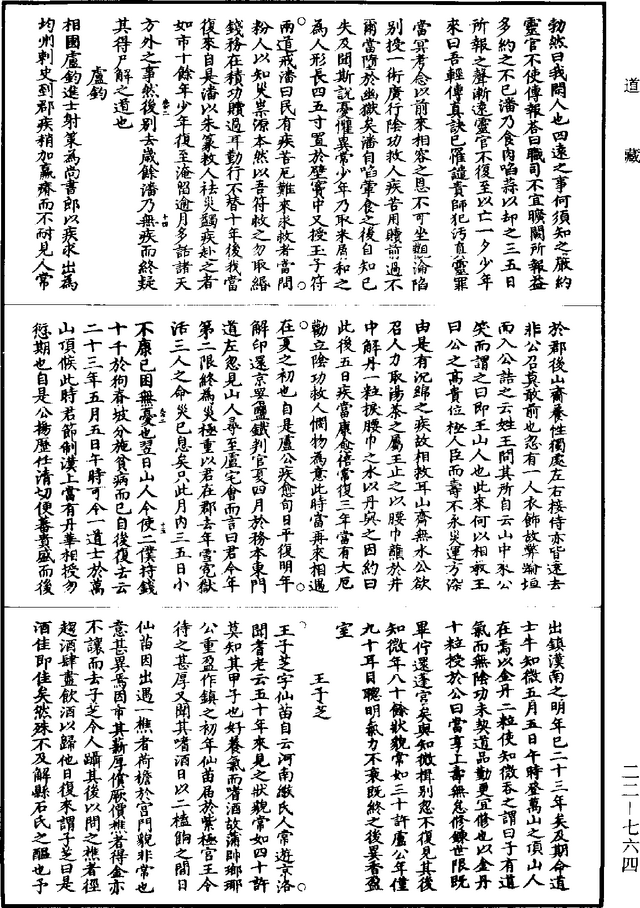 道藏
勃然曰我閻人也四遠之事何須知之嚴約
靈官不使傳報答曰職司不宜曠闕所報益
多約之不已潘乃食肉啗蒜以却之三五日
所報之聲漸遠靈官不復至以亡一夕少年
來曰吾輕傳真訣已罹譴責師犯污真靈罪
當冥考念以前來相容之恩不可坐觀淪陷
别授一術廣行陰功救人疾苦用贖前過不
爾當墮於幽獄矣潘自啗葷食之後自知已
失及聞斯說憂懼異常少年乃取米屑和之
為人形長四五寸置於壁竇中又授玉子符
兩道戒潘曰民有疾苦厄難來求救者當問
粉人以知災祟源本然以吾符救之勿取緡
錢務在積功贖過耳勤行不替十年後我當
復來自是潘以朱篆救人袪災蠲疾赴之者
如市十餘年少年復至淹留逾月多話諸天
方外之事然後别去歲餘潘乃無疾而終疑
其得尸解之道也
盧鈞
相國盧鈞進士射策為尚書郎以疾求出為
均州刺史到郡疾稍加羸瘠而不耐見人常
於郡後山齋養性獨處左右接侍亦皆遠去
非公召莫敢前也忽有一人衣飾故弊逾垣
而入公詰之云姓王問其所自云山中來公
笑而謂之曰即王山人也此來何以相敎王
曰公之高貴位極人臣而壽不永災運方深
由是有沉綿之疾故相救耳山齋無水公欲
召人力取湯茶之屬王止之以腰巾蘸於井
中解丹一粒捩腰巾之水以丹與之因約曰
此後五日疾當康愈倍常復三年當有大厄
勤立陰功救人憫物為意此時當再來相遇
在夏之初也自是盧公疾愈旬日平復明年
解印還京署鹽鐵判官夏四月於務本東門
道左忽見山人尋至盧宅會而言曰君今年
第二限終為災極重以君在郡去年雪寃獄
活三人之命災已息矣只此月內三五日小
不康已困無憂也翌日山人令使二僕持錢
十千於狗脊坡分施貧病而已自後復去云
二十三年五月五日午時可令一道士於萬
山頂候此時君節制漢上當有丹華相授勿
愆期也自是公揚歷任清切便蕃貴盛而後
出鎮漢南之明年已二十三年矣及期命道
士牛知微五月五日午時登萬山之頂山人
在焉以金丹二粒使知微吞之謂曰子有道
氣而無陰功未契道品勤更宜修也以金丹
十粒授於公曰當享上壽無怠修鍊世限既
畢佇還蓬宮矣與知微揖别忽不復見其後
知微年八十餘狀貌常如三十許盧公年僅
九十耳目聰明氣力不衰既終之後異香盈
室
王子芝
王子芝字仙苗自云河南緱氏人常遊京洛
聞耆老云五十年來見之狀貌常如四十許
莫知其甲子也好養氣而嗜酒故蒲帥瑯琊
公重盈作鎮之初年仙苗居於紫極宮王令
待之甚厚又聞其嗜酒日以二榼餉之間日
仙苗因出遇一樵者荷檐於宮門貌非常也
意甚異焉因市其薪厚償厥價樵者得金亦
不讓而去子芝令人躡其後以問之樵者徑
趨酒肆盡飲酒以歸他日復來謂子芝曰是
酒佳即佳矣然殊不及解縣石氏之醞也予
二二—七六四